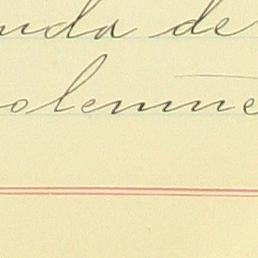 nda de
olemne